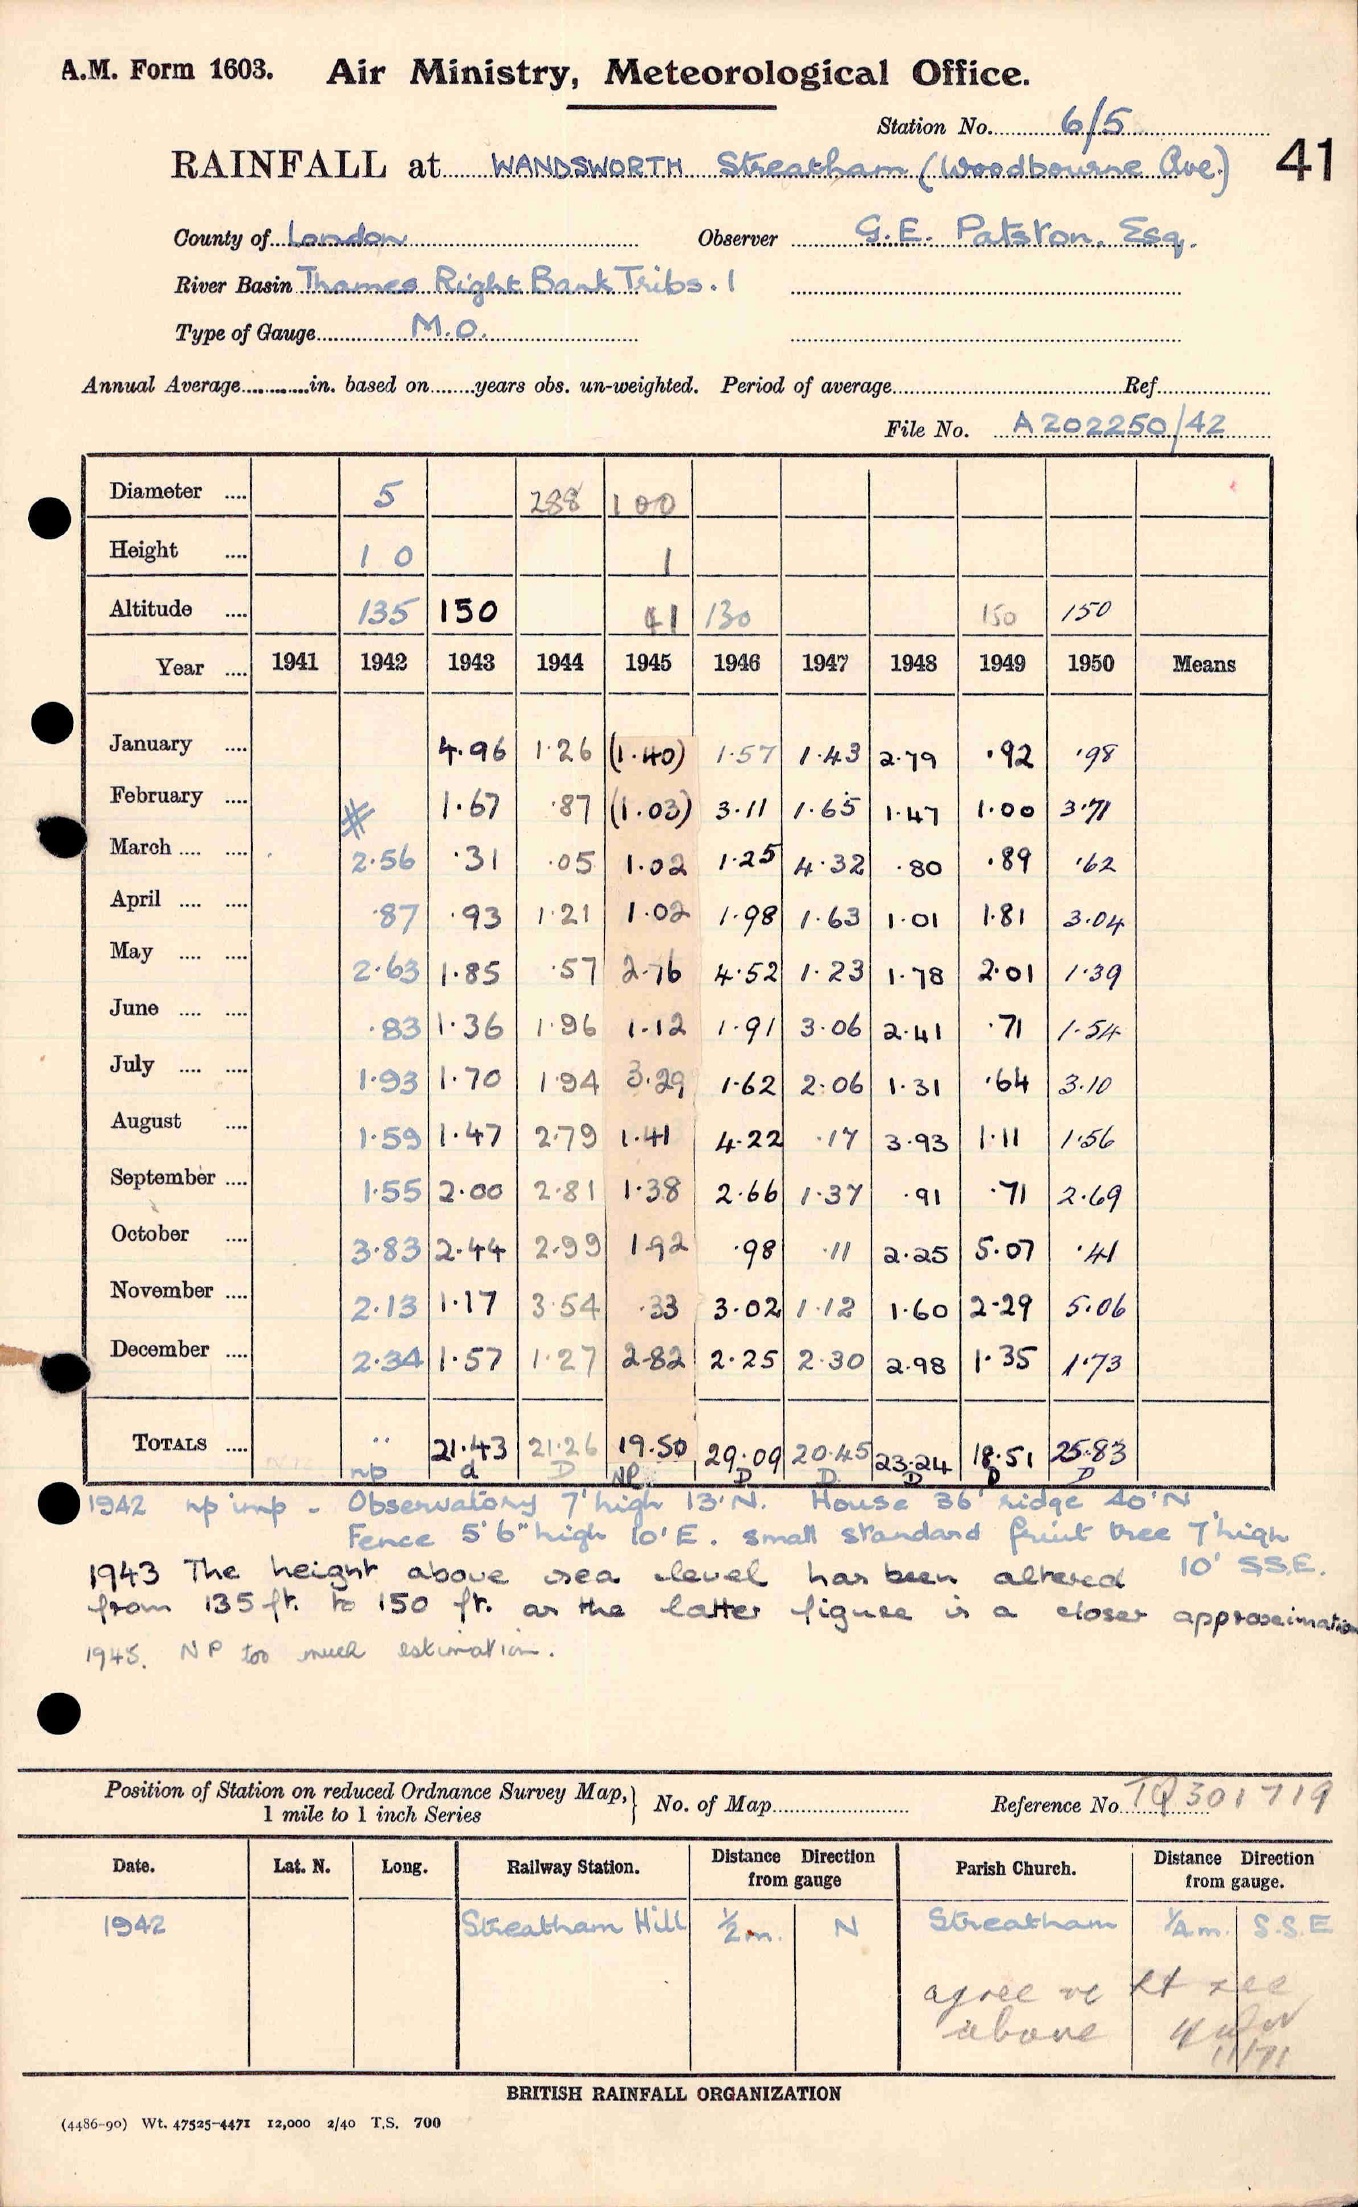 A.M. Form 1603. Air Ministry, Meteorological Office.
Station No. 6/5
41
RAINFALL at WANDSWORTH Streatham (Woodbourne Ave.)
County of London Observer G.E. Patston, Esq.
River Basin Thames Right Bank Tribs. 1
Type of Gauge M.O.
Annual Average in. based on years obs. un-weighted. Period of average Ref.
File No. A202250/42
Diameter .... 5 288 100
Height .... 1 0 1
Altitude .... 135 150 41 130 150 150
Year .... 1941 1942 1943 1944 1945 1946 1947 1948 1949 1950 Means
January .... 4.96 1.26 (1.40) 1.57 1.43 2.79 .92 .98
February .... # 1.67 .87 (1.03) 3.11 1.65 1.47 1.00 3.71
March .... .... 2.56 .31 .05 1.02 1.25 4.32 .80 .89 .62
April .... .... .87 .93 1.21 1.02 1.98 1.63 1.01 1.81 3.04
May .... .... 2.63 1.85 .57 2.76 4.52 1.23 1.78 2.01 1.39
June .... .... .83 1.36 1.96 1.12 1.91 3.06 2.41 .71 1.54
July .... .... 1.93 1.70 1.94 3.29 1.62 2.06 1.31 .64 3.10
August .... 1.59 1.47 2.79 1.41 4.22 .17 3.93 1.11 1.56
September .... 1.55 2.00 2.81 1.38 2.66 1.37 .91 .71 2.69
October .... 3.83 2.44 2.99 1.92 .98 .11 2.25 5.07 .41
November .... 2.13 1.17 3.54 .33 3.02 1.12 1.60 2.29 5.06
December .... 2.34 1.57 1.27 2.82 2.25 2.30 2.98 1.35 1.73
TOTALS .... .. 21.43 21.26 19.50 29.09 20.45 23.24 18.51 25.83
np d D NP D D D D D
1942 np imp - Observatory 7' high 13' N. House 36' ridge 40' N
Fence 5' 6" high 10' E. small standard fruit tree 7' high
10' SSE.
1943 The height above sea level has been altered
from 135 ft. to 150 ft. as the latter figure is a closer approximation
1945. NP too much estimation.
Position of Station on reduced Ordnance Survey Map,
1 mile to 1 inch Series
No. of Map Reference No. TQ 301719
Date. Lat. N. Long. Railway Station. Distance Direction from gauge Parish Church. Distance Direction from gauge.
1942 Streatham Hill ½ m. N Streatham ¼ m. S.S.E
agree
above
11/71
BRITISH RAINFALL ORGANIZATION
(4486-90) Wt. 47525-4471 12,000 2/40 T.S. 700